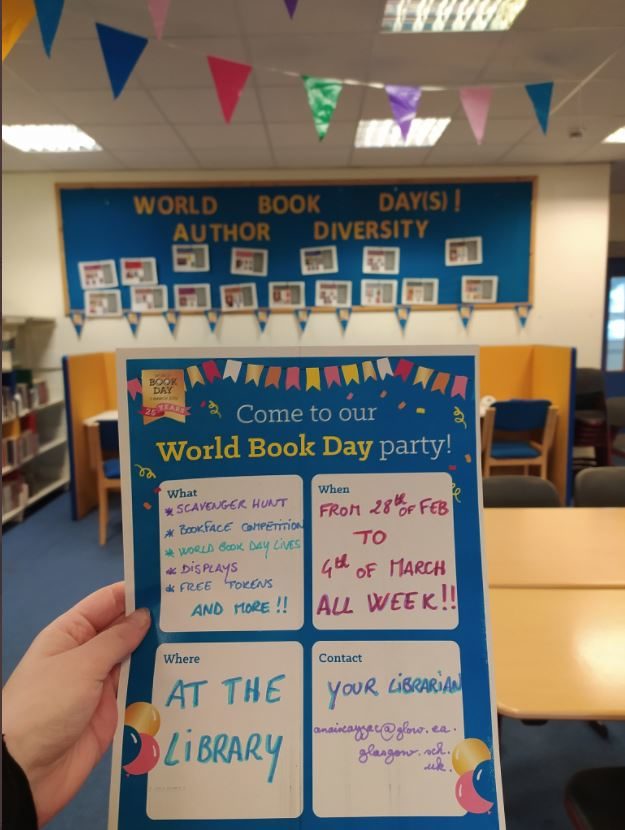 WORLD BOOK DAY(S)!
AUTHOR DIVERSITY
WORLD
BOOK
DAY
25 YEARS
Come to our
World Book Day party!
What
* SCAVENGER HUNT
* BOOKFACE COMPETITION
* WORLD BOOK DAY LIVES
* DISPLAYS
* FREE TOKENS
AND MORE !!
When
FROM 28th OF FEB
TO
4th OF MARCH
ALL WEEK!!
Where
AT THE
LIBRARY
Contact
YOUR LIBRARIAN
glasgow.sch.
uk.